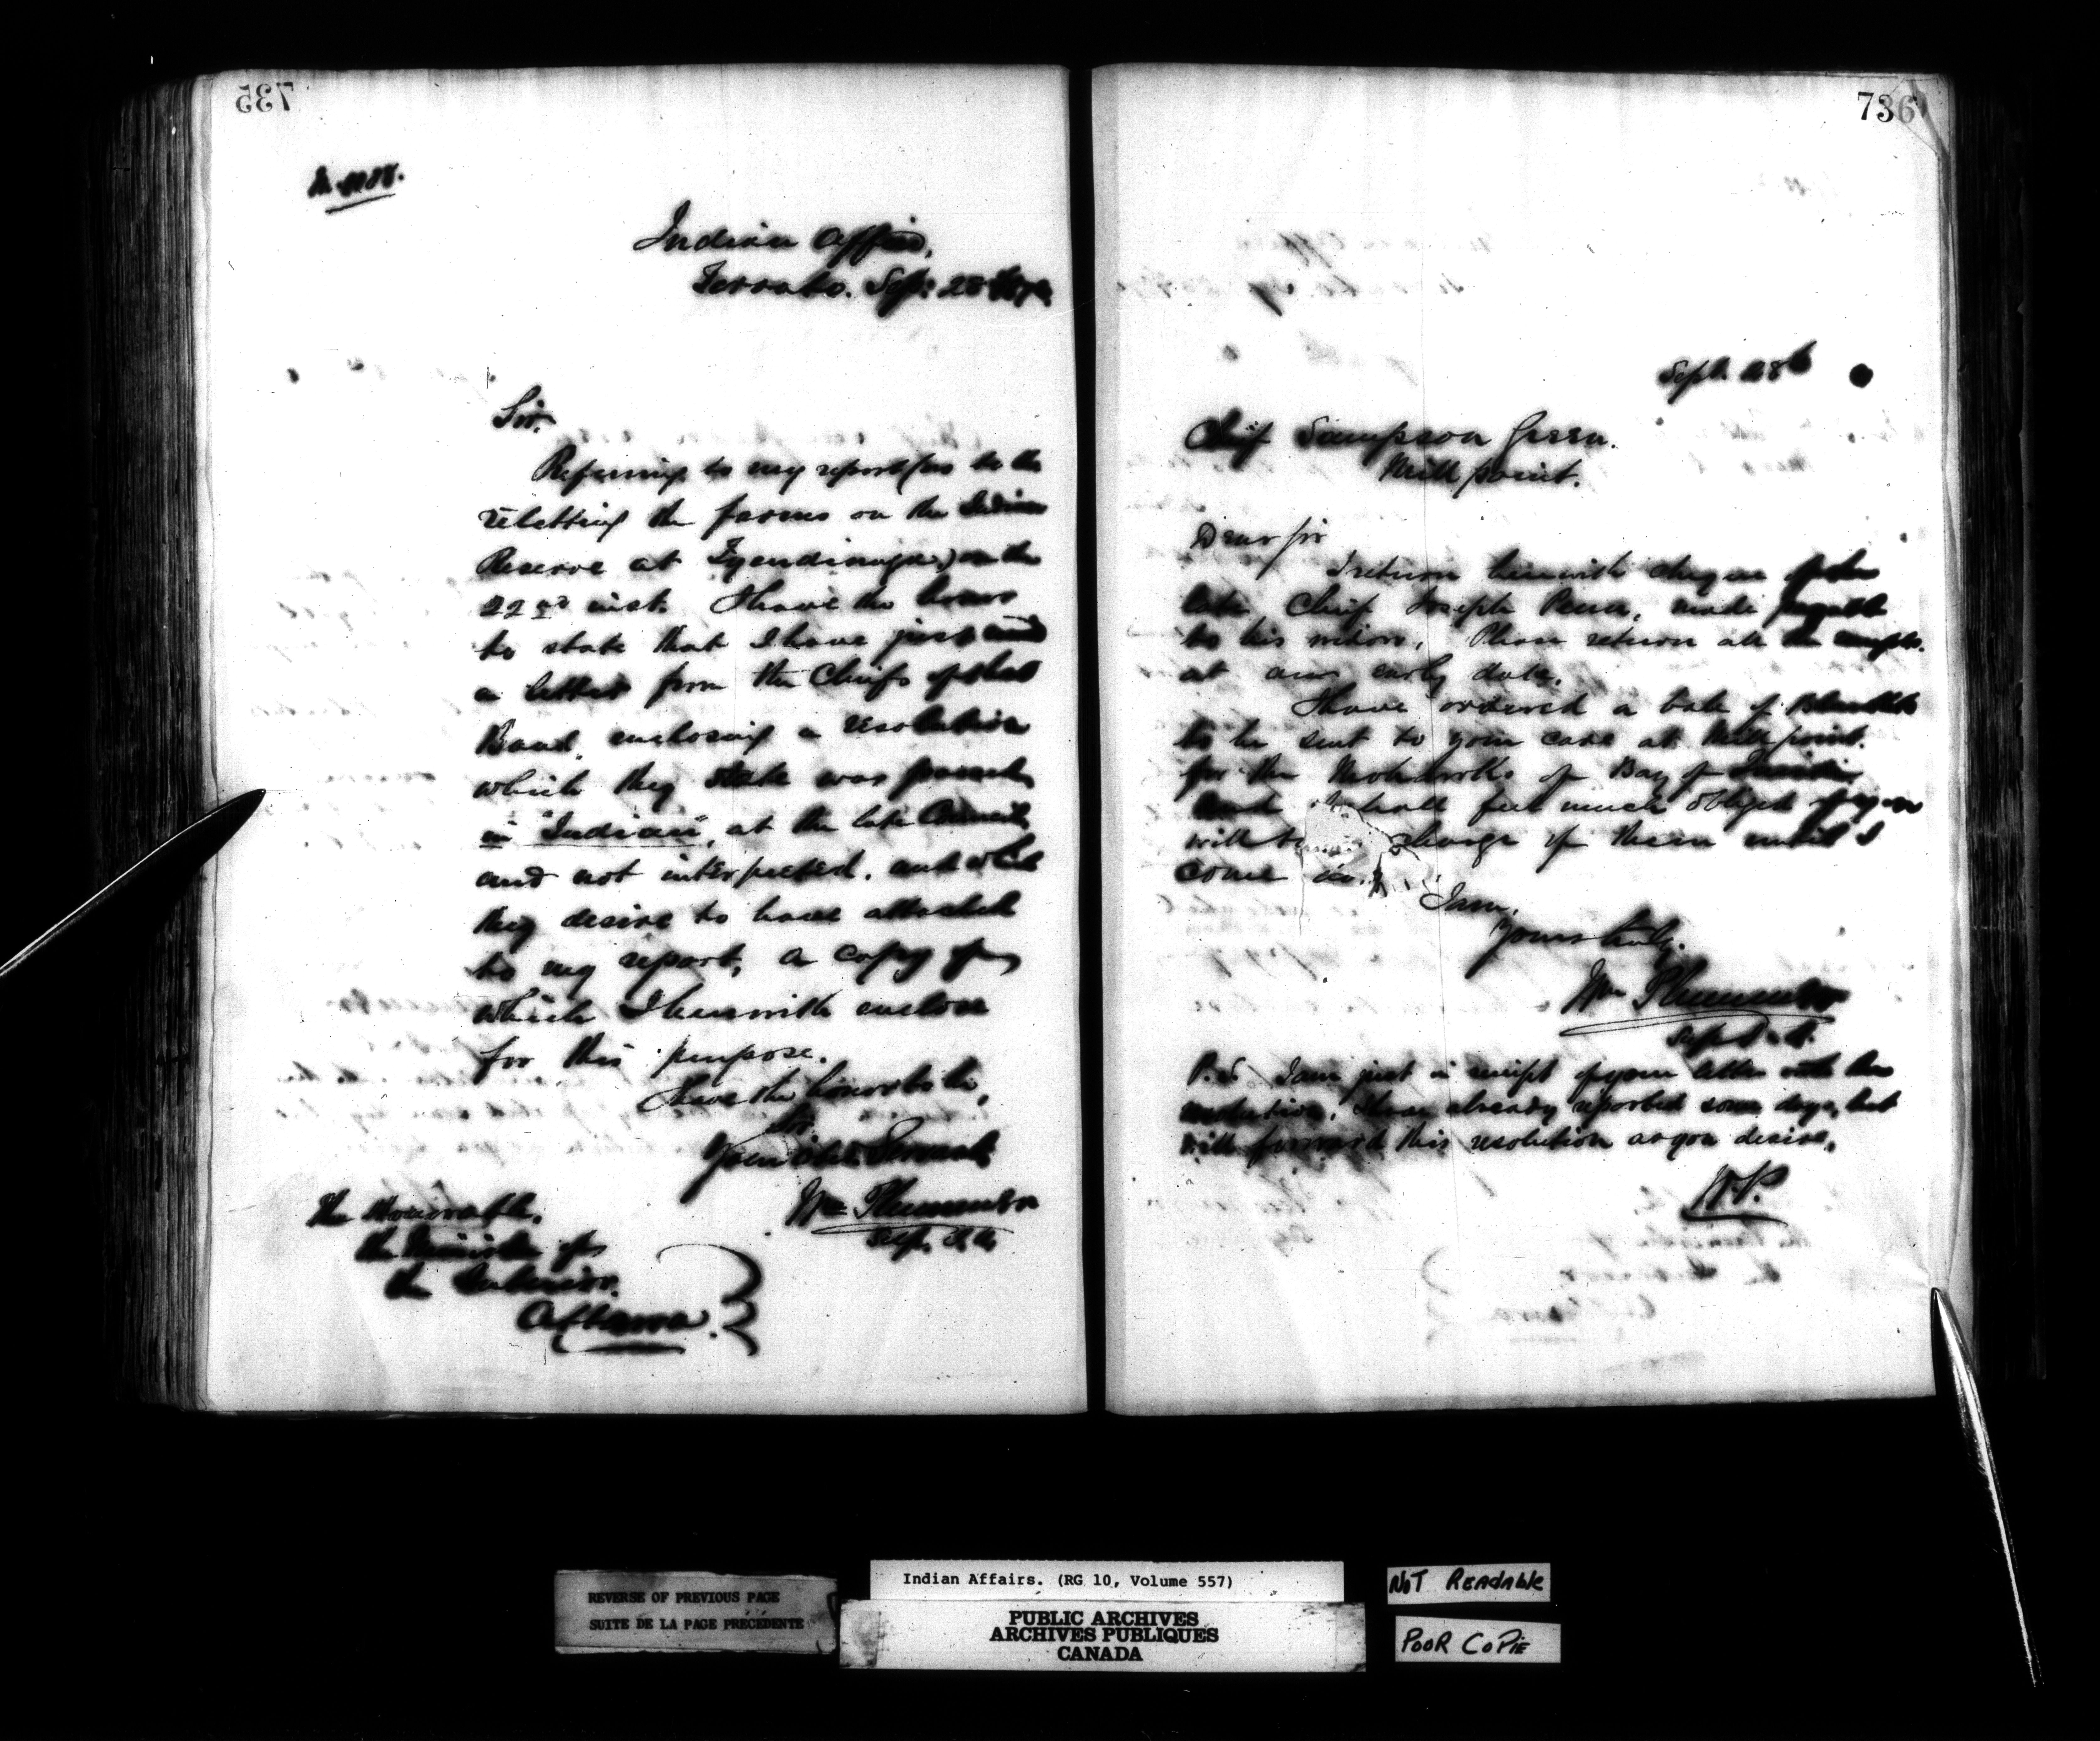 735
Indian Office,
Toronto. Sep: 28
Sir,
Referring to my report (as to the
reletting the farms on the Indian
Reserve at Tyendinaga) on the
22nd inst. I have the honor
to state that I have just
a letter from the Chiefs of that
Band, enclosing a resolution
which they state was passed
in "Indian", at the late Council
and not interpreted. and which
they desire to have attached
to my report, a copy of
which I herewith enclose
for this purpose.
I have the honor to be,
Sir
Your Obdt Servant
Wm Plummer
The Honorable,
the Minister of
the Interior.
Ottawa
736
Sept. 28th
Chief Sampson Green.
Mill point.
Dear Sir
I return herewith cheque of the
late Chief Joseph Penn, made payable
to his widow. Please return all the
at an early date.
I have ordered a bale of Blankets
to be sent to your care at Mill point.
for the Mohawks of Bay of Quinte
and I shall feel much obliged if you
will charge of them until I
come
I am,
Yours truly.
Wm Plummer
P.S. I am just in receipt of your letter with the
resolution, I have already reported some days, but
will forward this resolution as you desire.
W.P.
REVERSE OF PREVIOUS PAGE
SUITE DE LA PAGE PRÉCÉDENTE
Indian Affairs. (RG 10, Volume 557)
PUBLIC ARCHIVES
ARCHIVES PUBLIQUES
CANADA
NOT READABLE
POOR COPIE